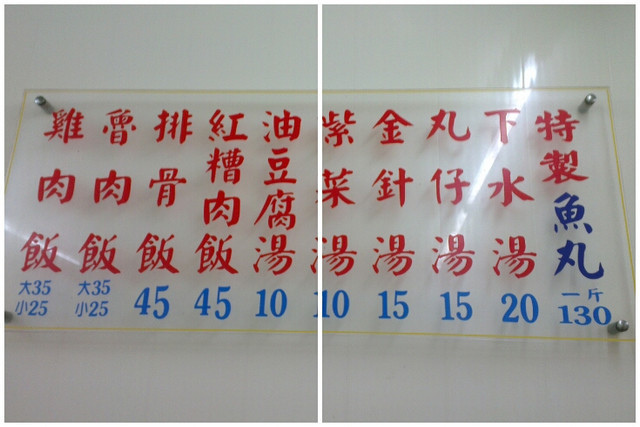 雞肉飯 大35 小25
魯肉飯 大35 小25
排骨飯 45
紅糟肉飯 45
油豆腐湯 10
紫菜湯 10
金針湯 15
丸仔湯 15
下水湯 20
特製魚丸 一斤 130